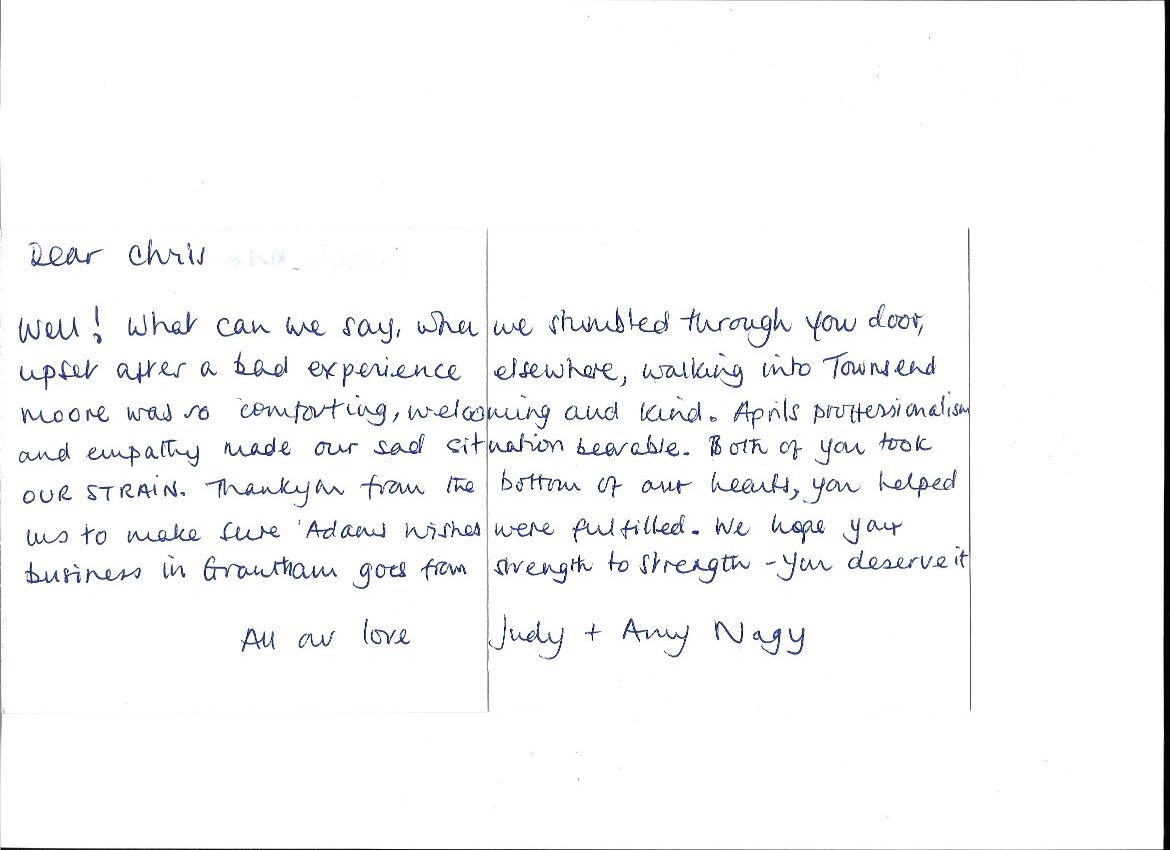 Dear Chris and
Well! What can we say, when we stumbled through you door,
upset after a bad experience elsewhere, walking into Townsend
moore was so comforting, welcoming and kind. Aprils proffessionalism
and empathy made our sad situation bearable. Both of you took
OUR STRAIN. Thankyou from the bottom of our hearts, you helped
us to make sure 'Adams wishes were fulfilled. We hope your
business in Grantham goes from strength to strength - you deserve it
All our love Judy + Amy Nagy